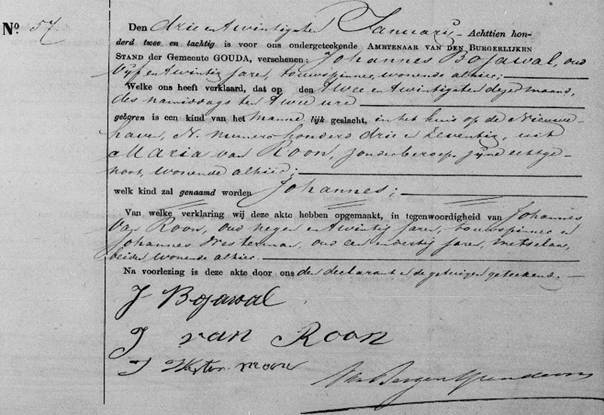 No. 57
Den drie en twintigsten Januarij Achttien hon-
derd twee en tachtig is voor ons ondergeteekende AMBTENAAR VAN DEN BURGERLIJKEN
STAND der Gemeente GOUDA, verschenen: Johannes Bojawal, oud
vijf en twintig jaren, touwspinner, wonende alhier;
Welke ons heeft verklaard, dat op den twee en twintigsten dezer maand,
des namiddags te twee ure
geboren is een kind van het mannelijk geslacht, in het huis op de Nieuwe-
have, N. numero honderd drie en zeventig, uit
Maria van Roon, zonder beroep, zijne echtge-
noot, wonende alhier;
welk kind zal genaamd worden Johannes;
Van welke verklaring wij deze akte hebben opgemaakt, in tegenwoordigheid van Johannes
van Roon, oud negen en twintig jaren, touwspinner en
Johannes Westerman, oud een en dertig jaren, metselaar,
beiden wonende alhier.
Na voorlezing is deze akte door ons, den declarant en de getuigen geteekend.
J Bojawal
J van Roon
J